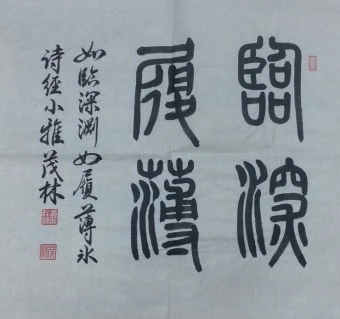 臨深
履薄
如臨深淵如履薄冰
诗经小雅茂林